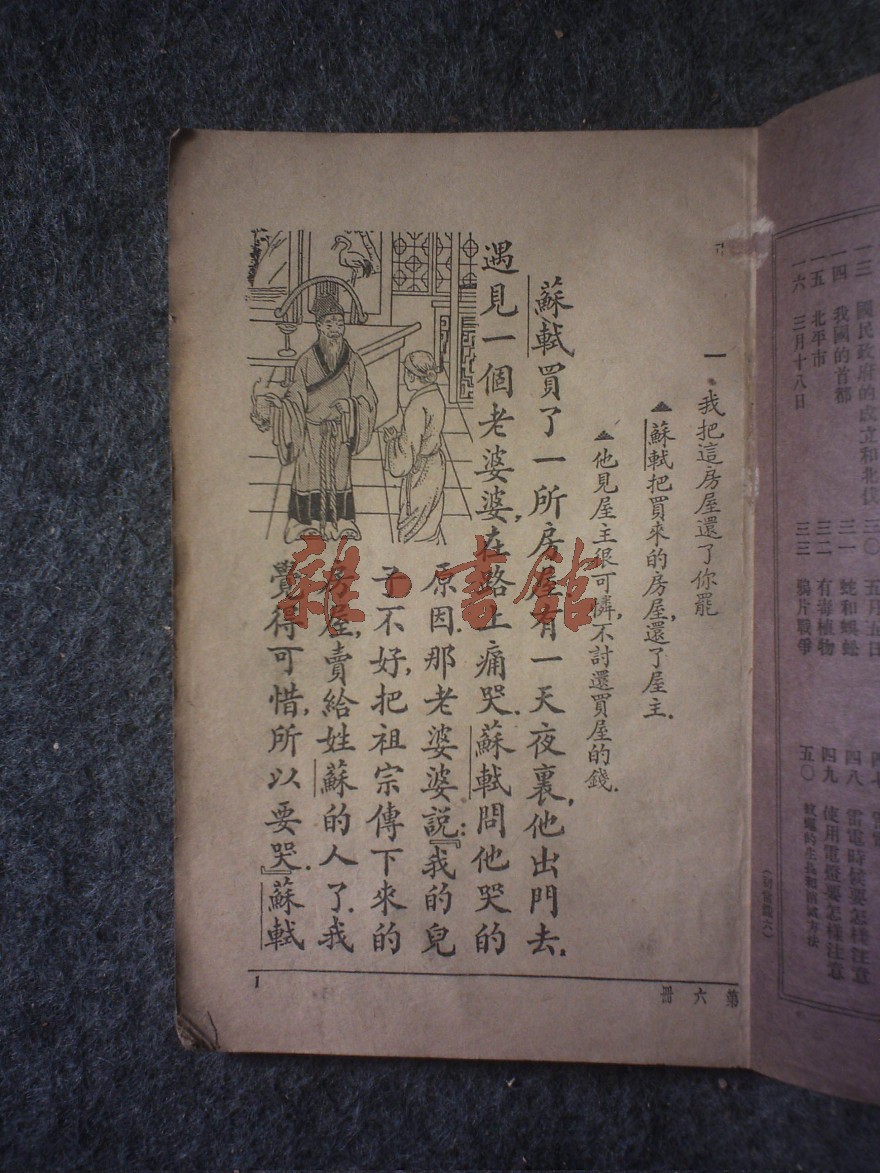 一 我把這房屋還了你罷
▲蘇軾把買來的房屋,還了屋主.
▲他見屋主很可憐,不討還買屋的錢.
蘇軾買了一所房屋.有一天夜裏,他出門去.
遇見一個老婆婆,在路上痛哭.蘇軾問他哭的
原因.那老婆婆說:『我的兒
子不好,把祖宗傳下來的
房屋,賣給姓蘇的人了.我
覺得可惜,所以要哭.』蘇軾
第六冊
1
雜·書館
一三 國民政府的成立和北伐
一四 我國的首都
一五 北平市
一六 三月十八日
三〇 五月五日
三一 蛇和蜈蚣
三二 有毒植物
三三 鴉片戰爭
四八 雷電時候要怎樣注意
四九 使用電燈要怎樣注意
五〇